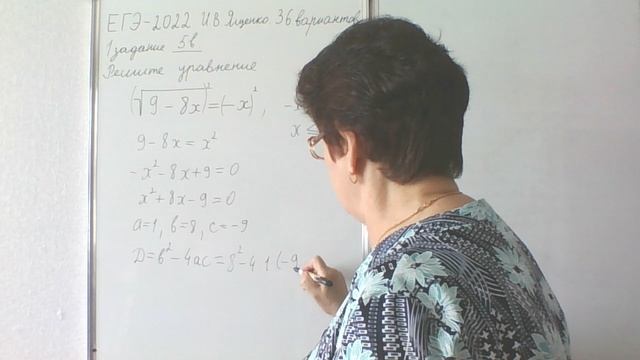 ЕГЭ-2022 И В Ященко 36 вариантов
1 задание 5в
Решите уравнение
(√9 - 8x)² = (-x)², -x
x ≤
9 - 8x = x²
-x² - 8x + 9 = 0
x² + 8x - 9 = 0
a=1, b=8, c=-9
D = b² - 4ac = 8² - 4·1·(-9